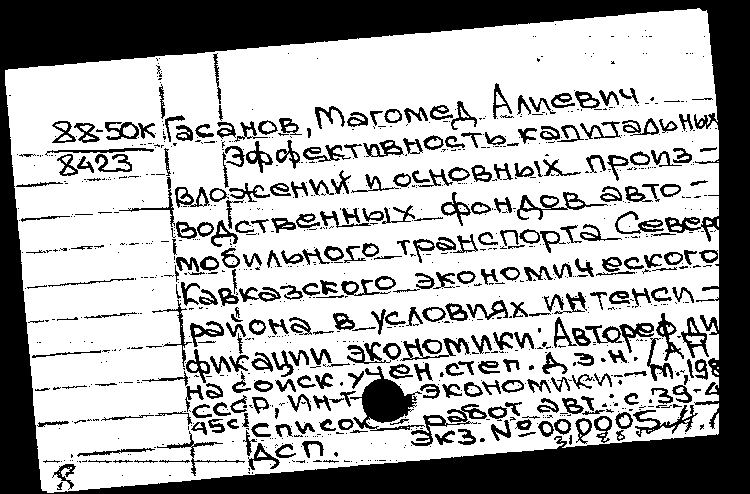 88-50к Гасанов, Магомед Алиевич.
8423 Эффективность капитальных
вложений и основных произ-
водственных фондов авто-
мобильного транспорта Северо
Кавказского экономического
района в условиях интенси-
фикации экономики: Автореф. ди
на соиск. учен. степ. д.э.н. / АН
СССР, Ин-т экономики. - М., 198
45с Список работ авт.: с 39-4
ДСП. Экз. № 000005
8